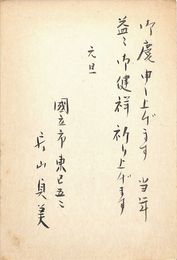 御慶申し上げます 当年
益々御健祥祈り上げます
元旦
國立市東巳五ノ二
長山貞美